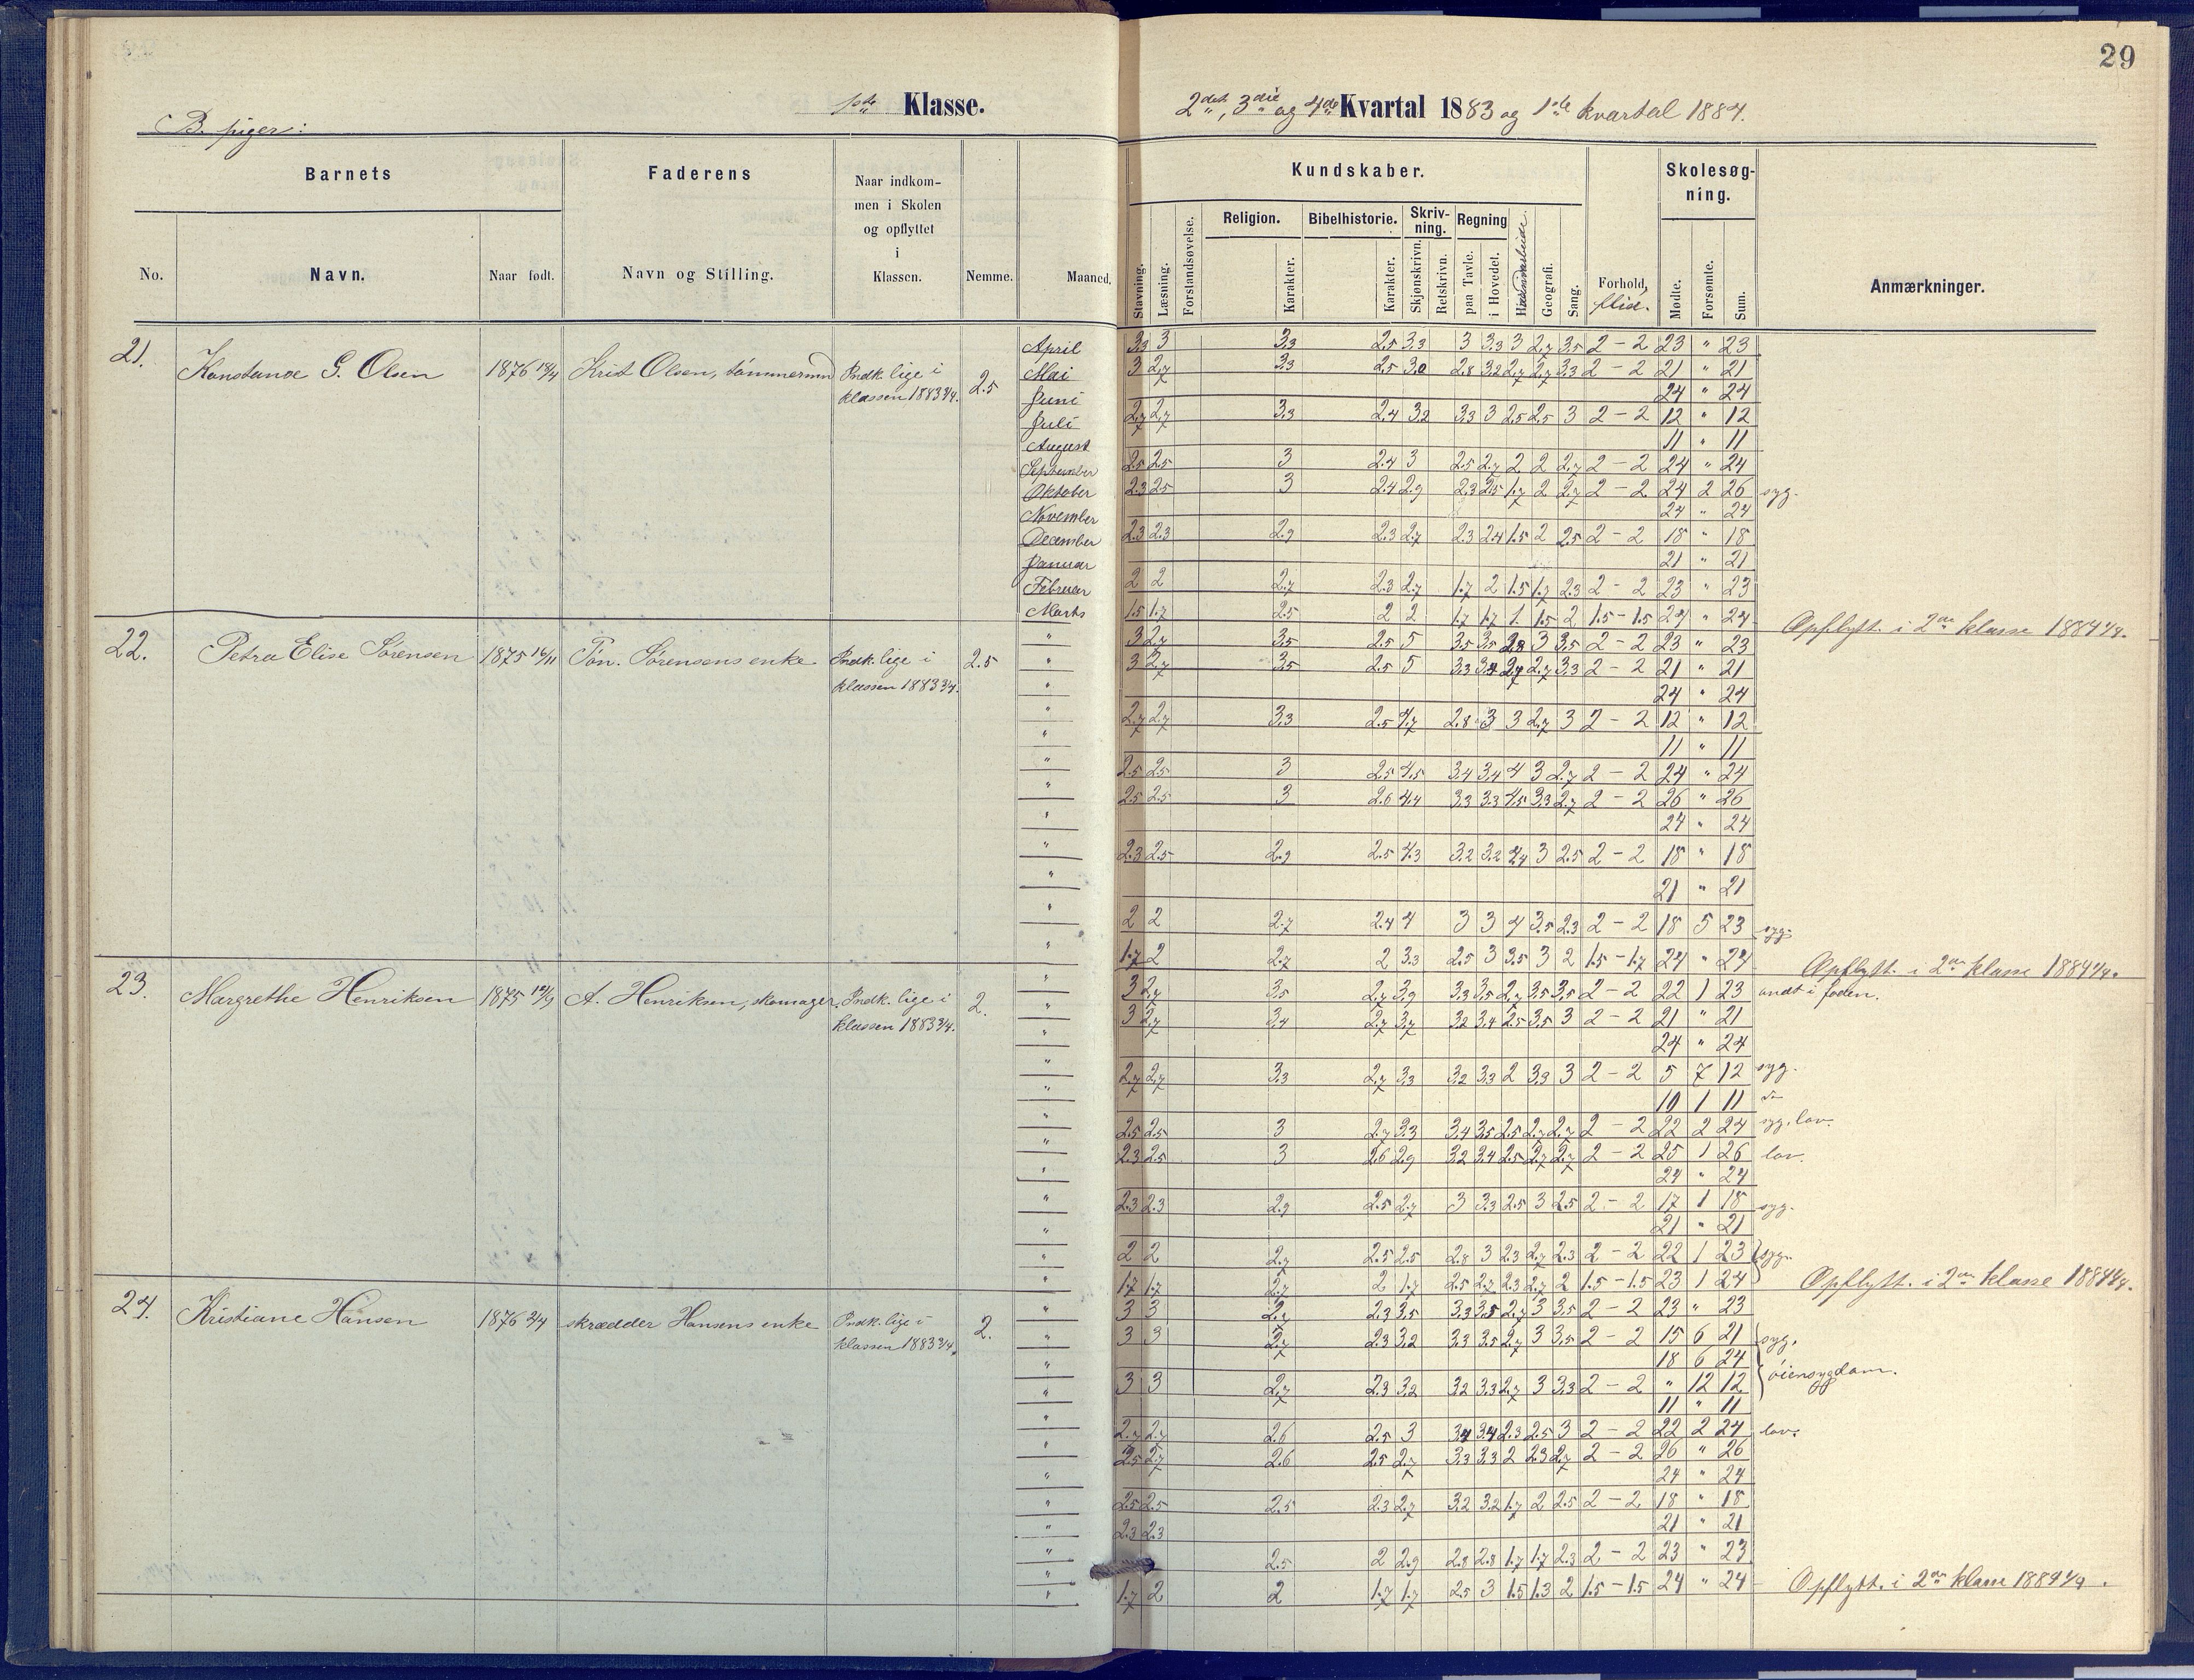 29
B. piger:
1ste Klasse.
2det, 3die og 4de Kvartal 1883 og 1ste kvartal 1884.
Barnets
Faderens
Naar indkom-
men i Skolen
og opflyttet
i
Klassen.
No.
Navn.
Naar født.
Navn og Stilling.
Nemme.
Maaned.
Kundskaber.
Skolesøg-
ning.
Religion.
Bibelhistorie.
Skriv-
ning.
Regning
Stavning.
Læsning.
Forstandsøvelse.
Karakter.
Karakter.
Skjønskrivn.
Retskrivn.
paa Tavle.
i Hovedet.
Geografi.
Sang.
Forhold,
flid.
Mødte.
Forsømte.
Sum.
Anmærkninger.
21. Konstance G. Olsen 1876 Krist Olsen, tømmermd Indk. lige i 2.5
klassen 1883
April 3.3 3 3.3 2.5 3.3 3 3.3 3 2.7 3.5 2 - 2 23 " 23
Mai 3 2.7 3.3 2.5 3.0 2.8 3.2 2.7 2.7 3.3 2 - 2 21 " 21
Juni 24 " 24
Juli 2.7 2.7 3.3 2.4 3.2 3.3 3 2.5 2.5 3 2 - 2 12 " 12
August 11 " 11
September 2.5 2.5 3 2.4 3 2.5 2.7 2 2 2.7 2 - 2 24 " 24
Oktober 2.3 2.5 3 2.4 2.9 2.3 2.5 1.7 2 2.7 2 - 2 24 2 26 syg.
November 24 " 24
December 2.3 2.3 2.9 2.3 2.7 2.3 2.4 1.5 2 2.5 2 - 2 18 " 18
Januar 21 " 21
Februar 2 2 2.7 2.3 2.7 1.7 2 1.5 1.7 2.3 2 - 2 23 " 23
Marts 1.5 1.7 2.5 2 2 1.7 1.7 1. 1.5 2 1.5 - 1.5 24 " 24 Opflytt. i 2den klasse 1884
22. Petra Elise Sørensen 1875 16/11 Tøn. Sørensens enke Indk. lige i 2.5
klassen 1883
" 3 2.7 3.5 2.5 5 3.5 3.5 2.8 3 3.5 2 - 2 23 " 23
" 3 2.7 3.5 2.5 5 3.3 3.4 2.7 2.7 3.3 2 - 2 21 " 21
" 24 " 24
" 2.7 2.7 3.3 2.5 4.7 2.8 3 3 2.7 3 2 - 2 12 " 12
" 11 " 11
" 2.5 2.5 3 2.5 4.5 3.4 3.4 4 3 2.7 2 - 2 24 " 24
" 2.5 2.5 3 2.6 4.4 3.3 3.3 4.5 3.3 2.7 2 - 2 26 " 26
" 24 " 24
" 2.3 2.5 2.9 2.5 4.3 3.2 3.2 4.4 3 2.5 2 - 2 18 " 18
" 21 " 21
" 2 2 2.7 2.4 4 3 3 4 3.5 2.3 2 - 2 18 5 23 syg.
" 1.7 2 2.7 2 3.3 2.5 3 3.5 3 2 1.5 - 1.7 24 " 24 Opflytt. i 2den klasse 1884
23. Margrethe Henriksen 1875 A. Henriksen, skomager. Indk. lige i 2.
klassen 1883
" 3 2.7 3.5 2.7 3.9 3.3 3.5 2.7 3.5 3.5 2 - 2 22 1 23 ondt i foden.
" 3 2.7 3.4 2.7 3.7 3.2 3.4 2.5 3.5 3 2 - 2 21 " 21
" 24 " 24
" 2.7 2.7 3.3 2.7 3.3 3.2 3.3 2 3.3 3 2 - 2 5 7 12 syg.
" 10 1 11
" 2.5 2.5 3 2.7 3.3 3.4 3.5 2.5 2.7 2.7 2 - 2 22 2 24 syg, lov.
" 2.3 2.5 3 2.6 2.9 3.2 3.4 2.5 2.7 2.7 2 - 2 25 1 26 lov.
" 24 " 24
" 2.3 2.3 2.9 2.5 2.7 3 3.3 2.5 3 2.5 2 - 2 17 1 18 syg.
" 21 " 21
" 2 2 2.7 2.5 2.5 2.8 3 2.3 2.7 2.3 2 - 2 22 1 23 syg.
" 1.7 1.7 2.7 2 1.7 2.5 2.7 2.3 2.7 2 1.5 - 1.5 23 1 24 Opflytt. i 2den klasse 1884
24. Kristiane Hansen 1876 skrædder Hansens enke Indk. lige i 2.
klassen 1883
" 3 3 2.7 2.3 3.5 3.3 3.5 2.7 3 3.5 2 - 2 23 " 23
" 3 3 2.7 2.3 3.2 3.3 3.5 2.7 3 3.5 2 - 2 15 6 21 syg.
" 18 6 24
" 3 3 2.7 2.3 3.2 3.2 3.3 2.7 3 3.3 2 - 2 " 12 12 øiensygdom.
" 11 " 11
" 2.7 2.7 2.6 2.5 3 3.4 3.4 2.3 2.5 3 2 - 2 22 2 24 lov.
" 2.5 2.7 2.6 2.5 2.7 3.3 3.3 2 2.3 2.7 2 - 2 26 " 26
" 24 " 24
" 2.5 2.5 2.5 2.3 2.7 3.2 3.2 1.7 2 2.5 2 - 2 18 " 18
" 2.3 2.3 21 " 21
" 2.5 2 2.9 2.8 2.8 1.7 1.7 2.3 2 - 2 23 " 23
" 1.7 2 2 1.7 1.7 2.5 3 1.5 1.3 2 1.5 - 1.5 24 " 24 Opflytt. i 2den klasse 1884